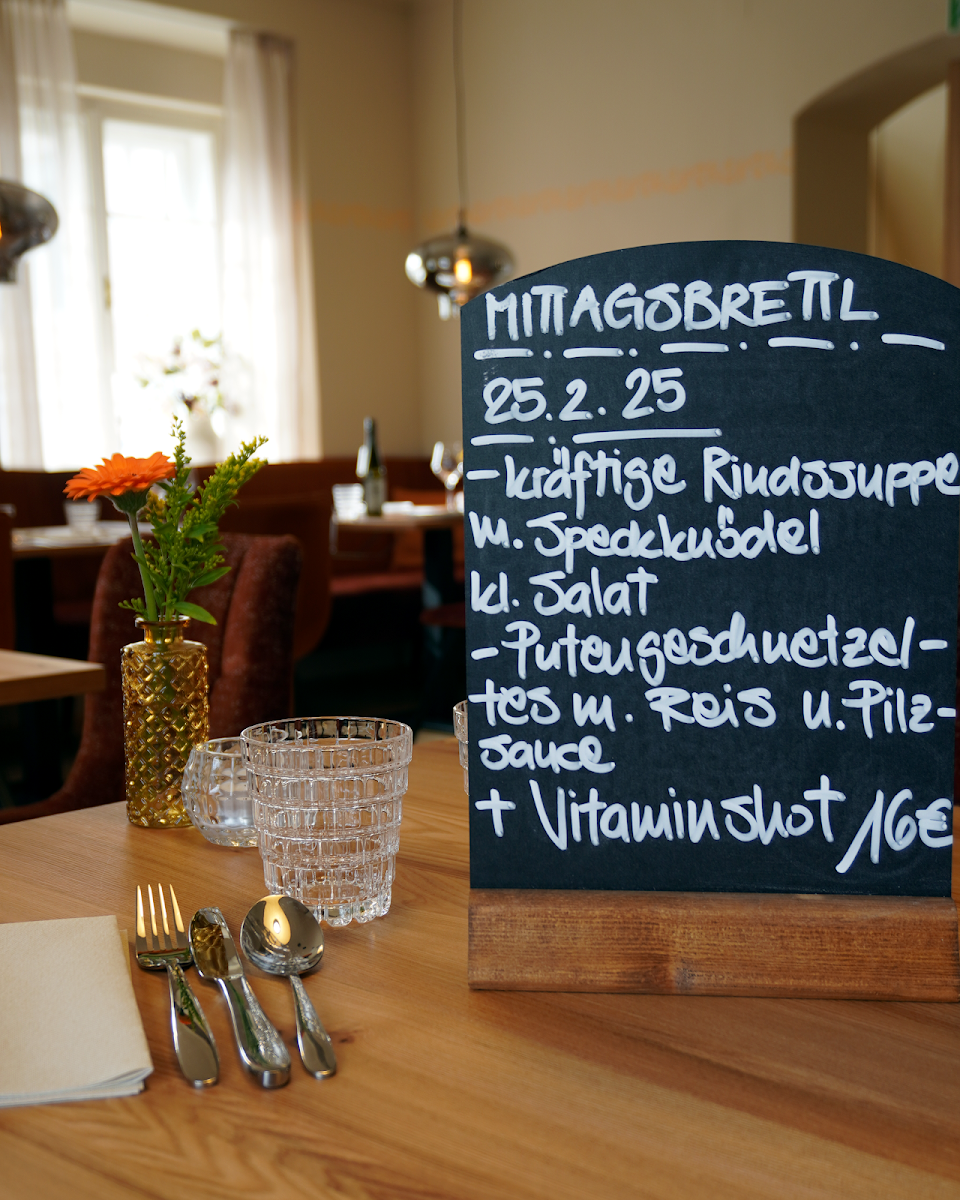 MITTAGSBRETTL
25.2.25
- kräftige Rindssuppe
m. Speckknödel
kl. Salat
- Putengeschnetzel-
tes m. Reis u. Pilz-
sauce
+ Vitaminshot 16€